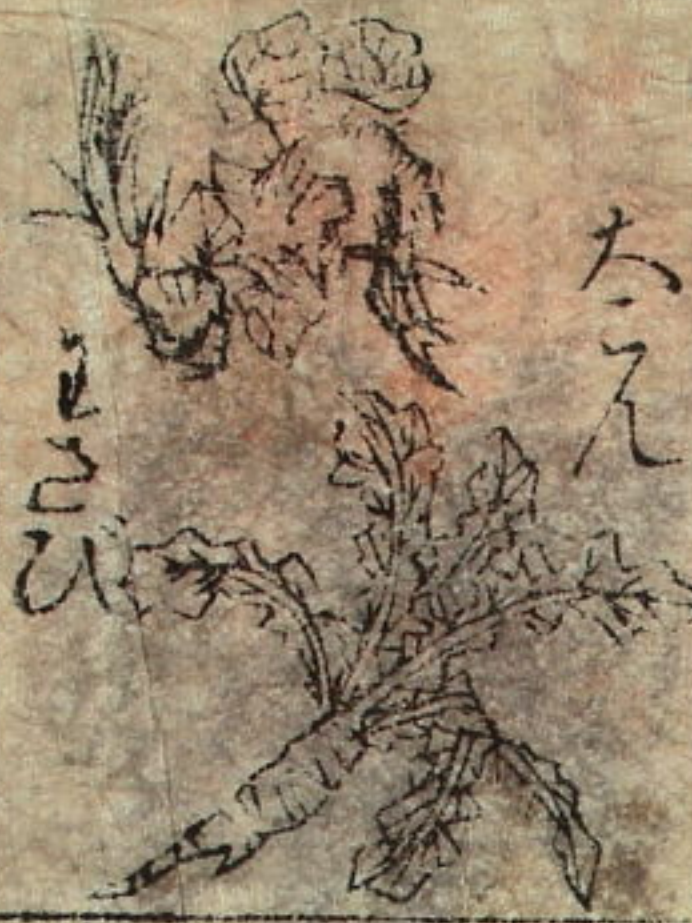 大こん
わさび